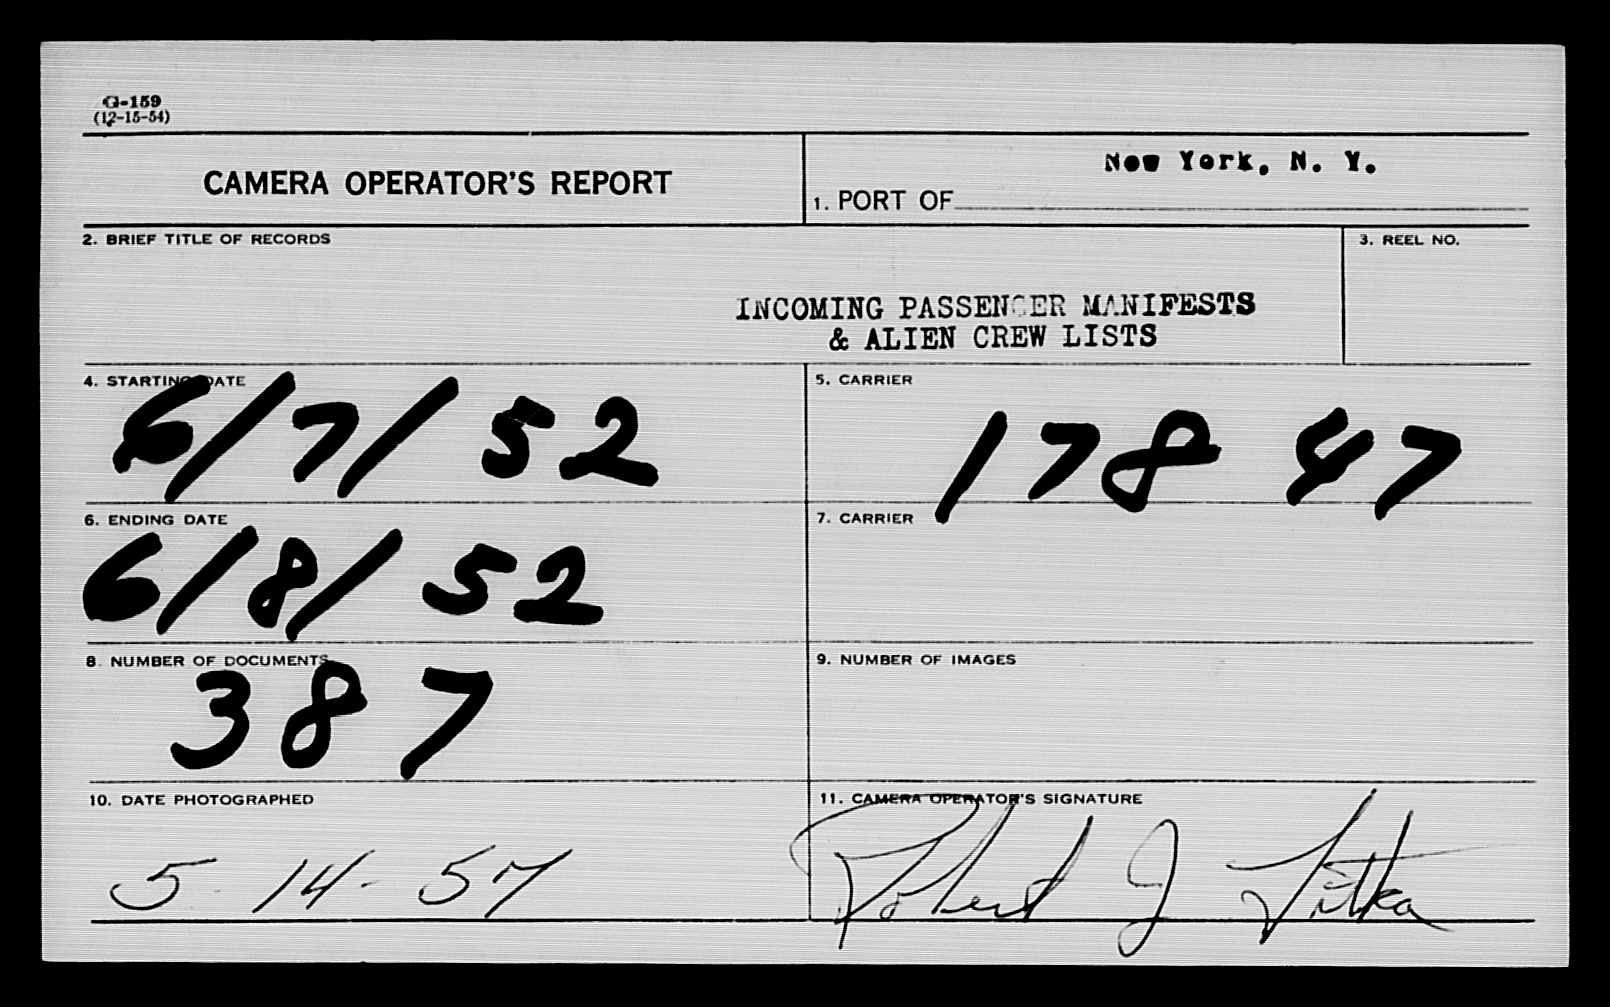 G-159
(12-15-54)
CAMERA OPERATOR'S REPORT
New York, N. Y.
1. PORT OF
2. BRIEF TITLE OF RECORDS
3. REEL NO.
INCOMING PASSENGER MANIFESTS
& ALIEN CREW LISTS
4. STARTING DATE
6/7/52
5. CARRIER
178 47
6. ENDING DATE
6/8/52
7. CARRIER
8. NUMBER OF DOCUMENTS
387
9. NUMBER OF IMAGES
10. DATE PHOTOGRAPHED
5-14-57
11. CAMERA OPERATOR'S SIGNATURE
Robert J